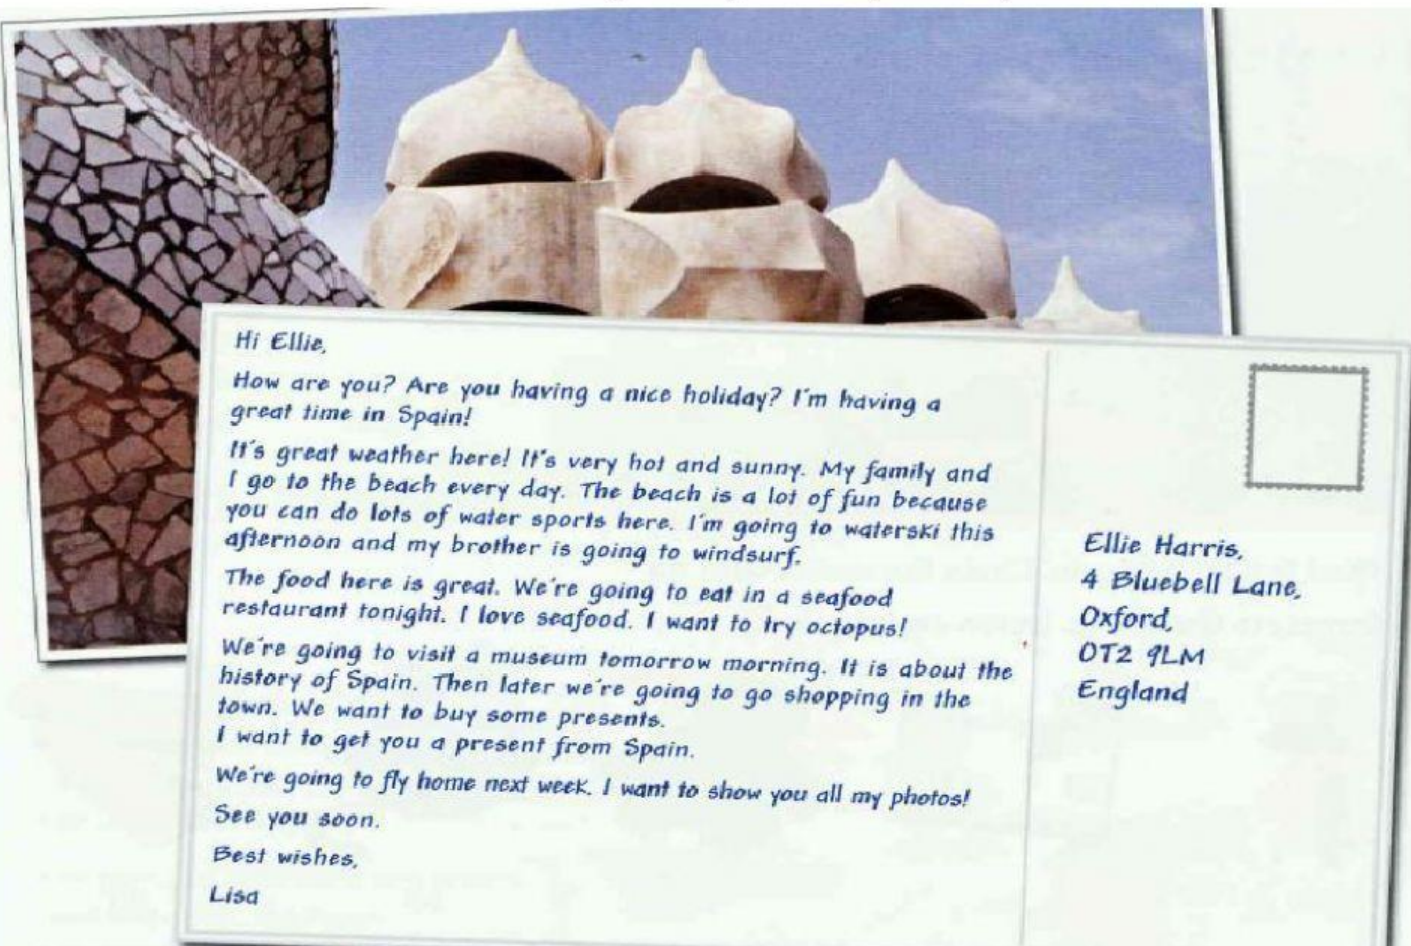 Hi Ellie,
How are you? Are you having a nice holiday? I'm having a
great time in Spain!
It's great weather here! It's very hot and sunny. My family and
I go to the beach every day. The beach is a lot of fun because
you can do lots of water sports here. I'm going to waterski this
afternoon and my brother is going to windsurf.
The food here is great. We're going to eat in a seafood
restaurant tonight. I love seafood. I want to try octopus!
We're going to visit a museum tomorrow morning. It is about the
history of Spain. Then later we're going to go shopping in the
town. We want to buy some presents.
I want to get you a present from Spain.
We're going to fly home next week. I want to show you all my photos!
See you soon.
Best wishes,
Lisa
Ellie Harris,
4 Bluebell Lane,
Oxford,
OT2 9LM
England